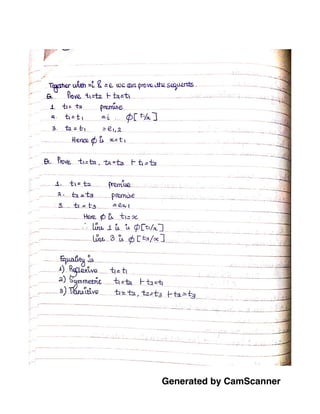 Together with =i & =e we can prove the sequents.
Prove t1=t2 ⊢ t2=t1
1. t1= t2 premise
2. t1=t1 =i ϕ[t1/x]
3. t2=t1 =e 1,2
Hence ϕ is x=t1
Prove t1=t2, t2=t3 ⊢ t1=t3
1. t1=t2 premise
2. t2=t3 premise
3. t1=t3
Here ϕ is t1=x
∴ line 1 is
line 3 is ϕ[t3/x]
Equality is
1) Reflexive t1=t1
2) Symmetric t1=t2 ⊢ t2=t1
3) Transitive t1=t2, t2=t3 ⊢ t1=t3
Generated by CamScanner